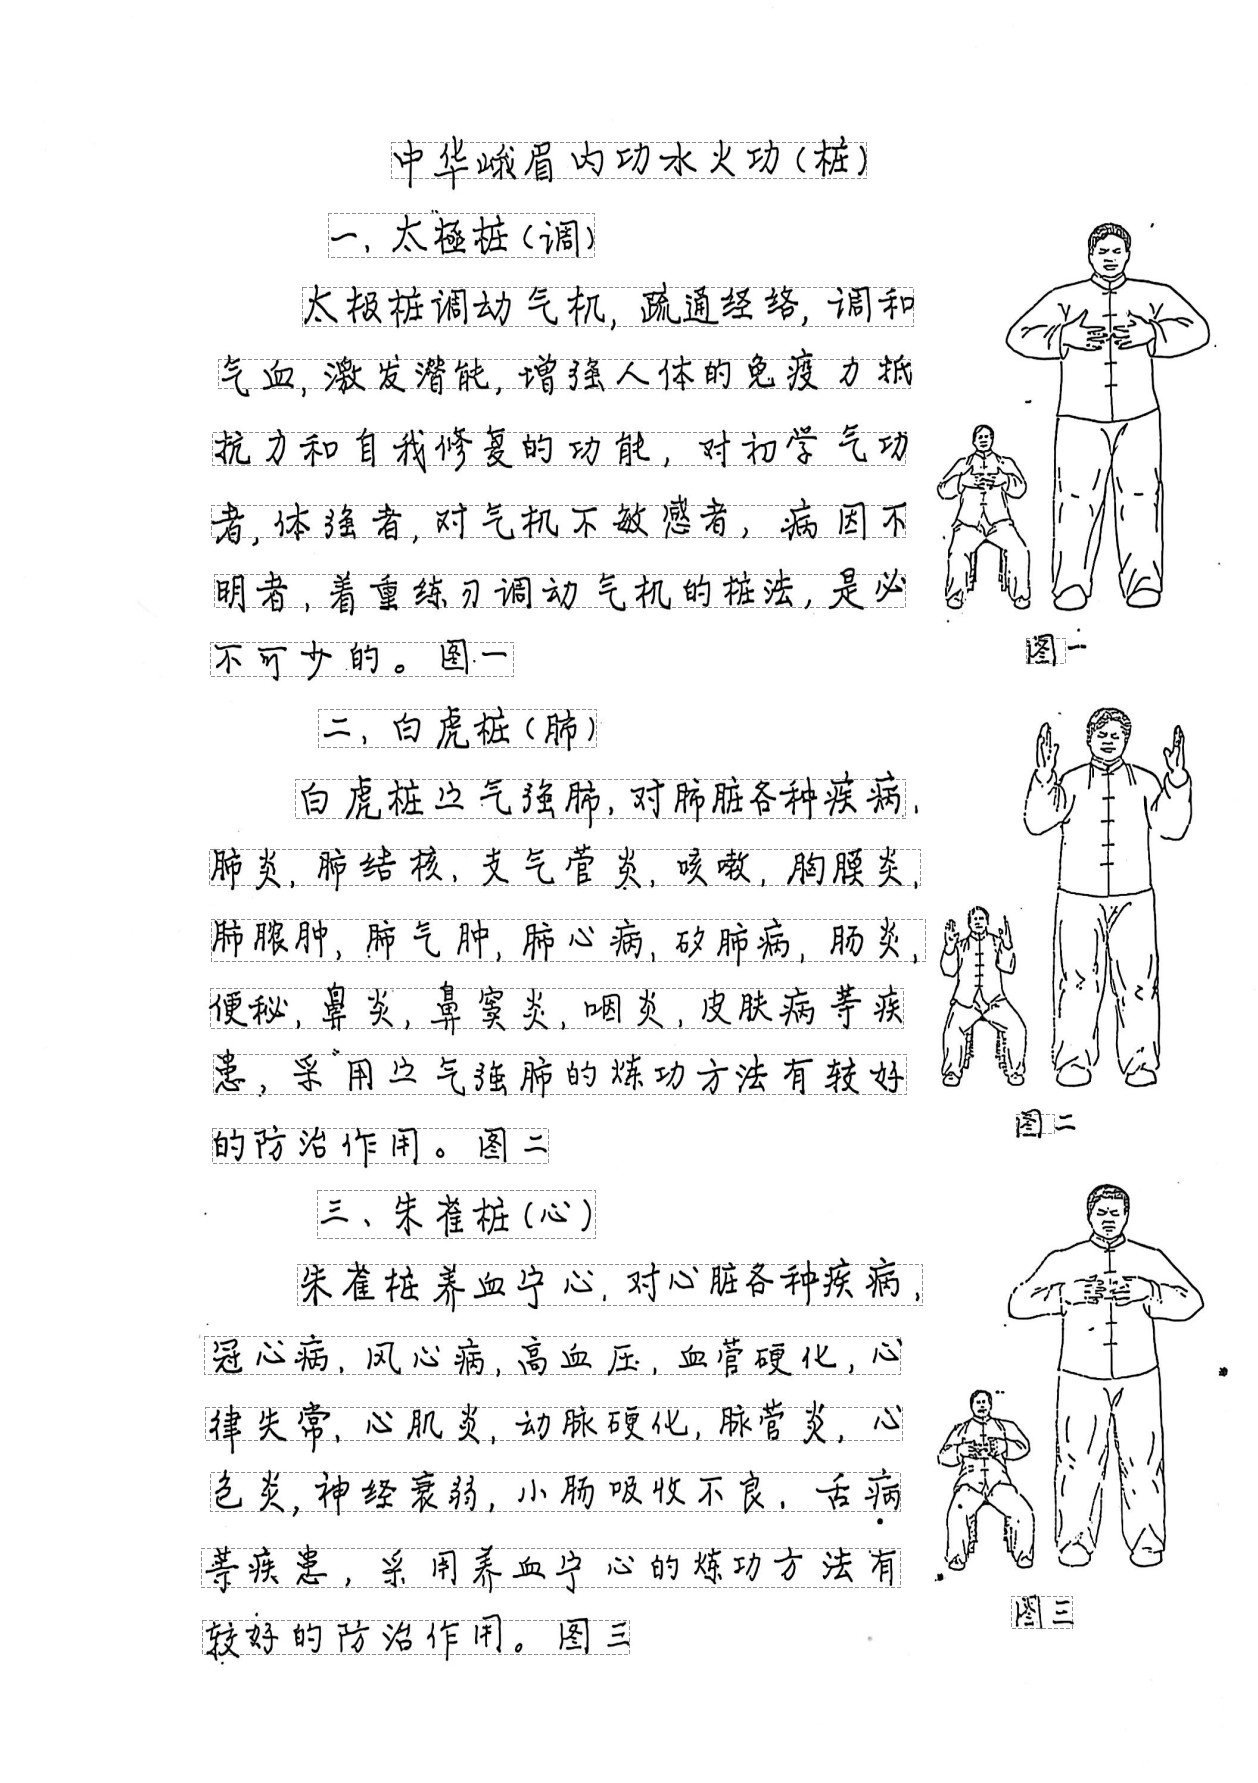 中华峨眉内功水火功(桩)
一、太極桩(调)
太极桩调动气机,疏通经络,调和
气血,激发潜能,增强人体的免疫力抵
抗力和自我修复的功能,对初学气功
者,体强者,对气机不敏感者,病因不
明者,着重练习调动气机的桩法,是必
不可少的。图一
图一
二、白虎桩(肺)
白虎桩立气强肺,对肺脏各种疾病,
肺炎,肺结核,支气管炎,咳嗽,胸膜炎,
肺脓肿,肺气肿,肺心病,矽肺病,肠炎,
便秘,鼻炎,鼻窦炎,咽炎,皮肤病等疾
患,采用立气强肺的炼功方法有较好
的防治作用。图二
图二
三、朱雀桩(心)
朱雀桩养血宁心,对心脏各种疾病,
冠心病,风心病,高血压,血管硬化,心
律失常,心肌炎,动脉硬化,脉管炎,心
包炎,神经衰弱,小肠吸收不良,舌病
等疾患,采用养血宁心的炼功方法有
较好的防治作用。图三
图三